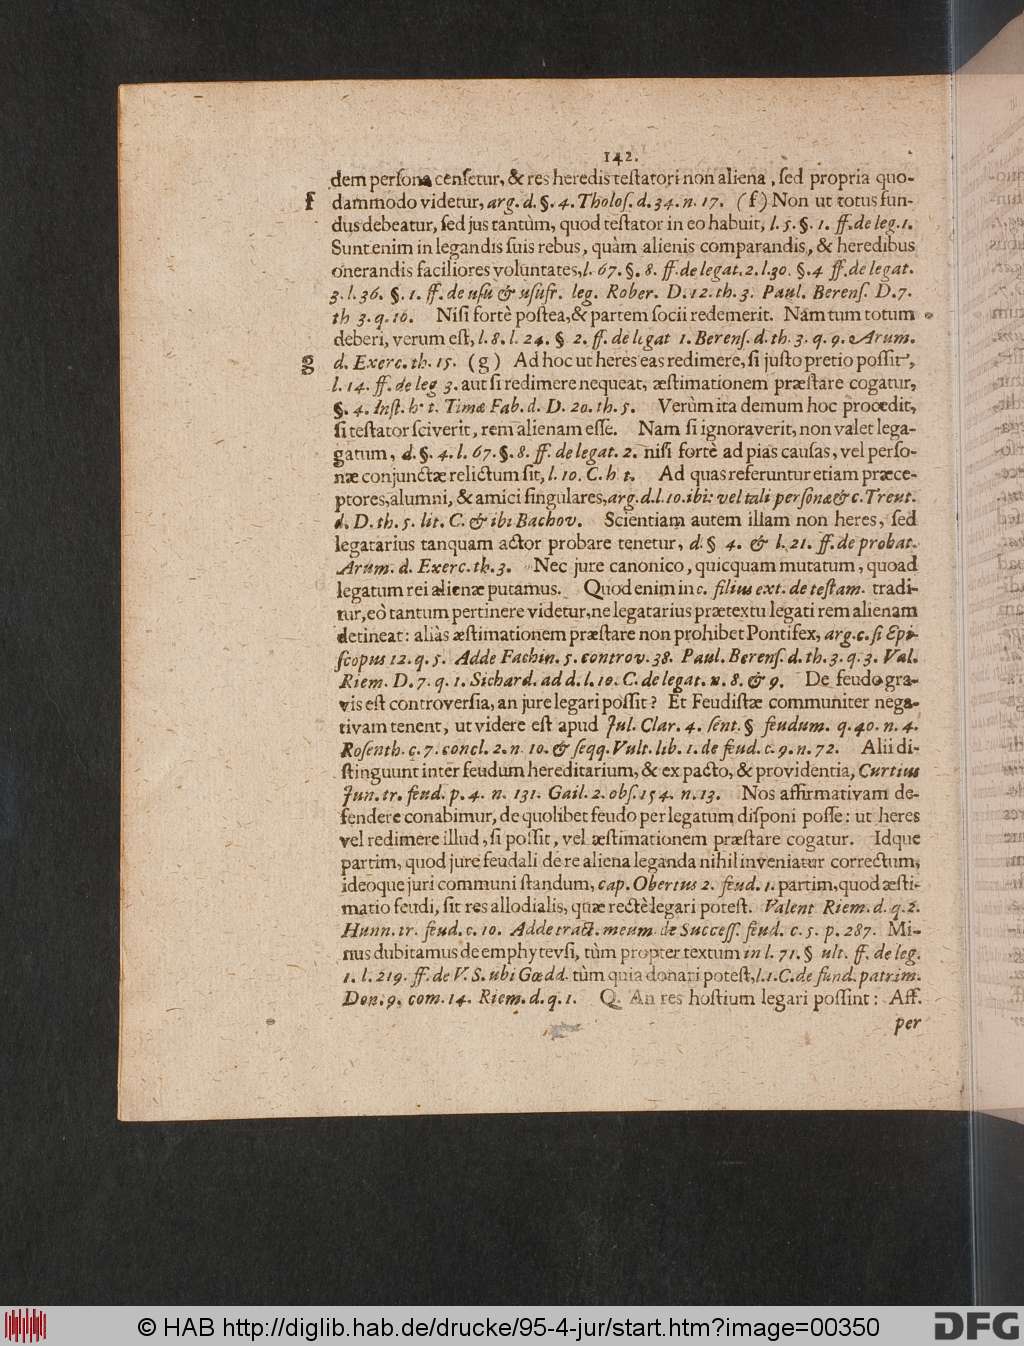 142.
dem persona censetur, & res heredis testatori non aliena, sed propria quo-
f dammodo videtur, arg. d. §. 4. Tholos. d. 34. n. 17. (f) Non ut totus fun-
dus debeatur, sed jus tantùm, quod testator in eo habuit, l. 5. §. 1. ff. de leg. 1.
Sunt enim in legandis suis rebus, quàm alienis comparandis, & heredibus
onerandis faciliores voluntates, l. 67. §. 8. ff. de legat. 2. l. 30. §. 4 ff. de legat.
3. l. 36. §. 1. ff. de usu & usufr. leg. Rober. D. 12. th. 3. Paul. Berens. D. 7.
th 3. q. 16. Nisi fortè postea, & partem socii redemerit. Nam tum totum
deberi, verum est, l. 8. l. 24. § 2. ff. de legat 1. Berens. d. th. 3. q. 9. Arum.
g d. Exerc. th. 15. (g) Ad hoc ut heres eas redimere, si justo pretio possit,
l. 14. ff. de leg 3. aut si redimere nequeat, æstimationem præstare cogatur,
§. 4. Inst. h. t. Timæ Fab. d. D. 20. th. 5. Verùm ita demum hoc procedit,
si testator sciverit, rem alienam esse. Nam si ignoraverit, non valet lega-
gatum, d. §. 4. l. 67. §. 8. ff. de legat. 2. nisi fortè ad pias causas, vel perso-
næ conjunctæ relictum sit, l. 10. C. h t. Ad quas referuntur etiam præce-
ptores, alumni, & amici singulares, arg. d. l. 10. ibi: vel tali personæ &c. Treut.
d. D. th. 5. lit. C. & ibi Bachov. Scientiam autem illam non heres, sed
legatarius tanquam actor probare tenetur, d. § 4. & l. 21. ff. de probat.
Arum. d. Exerc. th. 3. Nec jure canonico, quicquam mutatum, quoad
legatum rei alienæ putamus. Quod enim in c. filius ext. de testam. tradi-
tur, eò tantum pertinere videtur, ne legatarius prætextu legati rem alienam
detineat: aliàs æstimationem præstare non prohibet Pontifex, arg. c. si Epi-
scopus 12. q. 5. Adde Fachin. 5. controv. 38. Paul. Berens. d. th. 3. q. 3. Val.
Riem. D. 7. q. 1. Sichard. ad d. l. 10. C. de legat. n. 8. & 9. De feudo gra-
vis est controversia, an jure legari possit? Et Feudistæ communiter nega-
tivam tenent, ut videre est apud Jul. Clar. 4. sent. § feudum. q. 40. n. 4.
Rosenth. c. 7. concl. 2. n. 10. & seqq. Vult. lib. 1. de feud. c. 9. n. 72. Alii di-
stinguunt inter feudum hereditarium, & ex pacto, & providentia, Curtius
Jun. tr. feud. p. 4. n. 131. Gail. 2. obs. 154. n. 13. Nos affirmativam de-
fendere conabimur, de quolibet feudo per legatum disponi posse: ut heres
vel redimere illud, si possit, vel æstimationem præstare cogatur. Idque
partim, quod jure feudali de re aliena leganda nihil inveniatur correctum,
ideoque juri communi standum, cap. Obertus 2. feud. 1. partim, quod æsti-
matio feudi, sit res allodialis, quæ rectè legari potest. Valent Riem. d. q. 2.
Hunn. tr. feud. c. 10. Adde tract. meum de Success. feud. c. 5. p. 287. Mi-
nus dubitamus de emphytevsi, tùm propter textum in l. 71. § ult. ff. de leg.
1. l. 219. ff. de V. S. ubi Gœdd. tùm quia donari potest, l. 1. C. de fund. patrim.
Don. 9. com. 14. Riem. d. q. 1. Q. An res hostium legari possint: Aff.
per
© HAB http://diglib.hab.de/drucke/95-4-jur/start.htm?image=00350
DFG